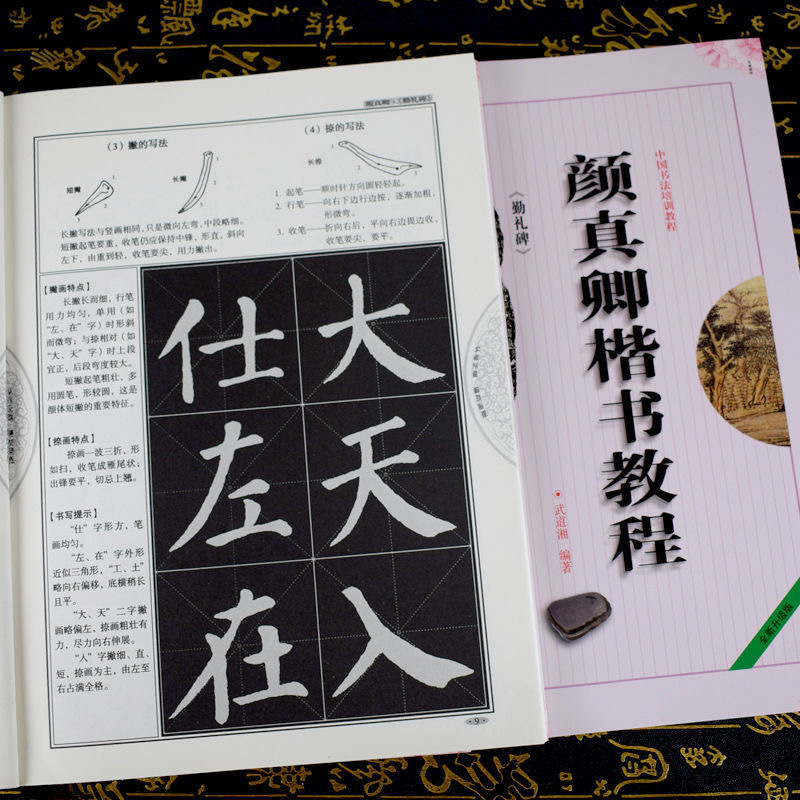 颜真卿·《勤礼碑》
（3）撇的写法
短撇
1
2
长撇
1
2
3
长撇写法与竖画相同，只是微向左弯，中段略细。
短撇起笔要重，收笔仍应保持中锋，形直，斜向
左下，由重到轻，收笔要尖，用力撇出。
（4）捺的写法
长捺
1
2
3
1. 起笔——顺时针方向圆轻轻起。
2. 行笔——向右下边行边按，逐渐加粗，
形微弯。
3. 收笔——折向右后，平向右边提边收，
收笔要尖，要平。
【撇画特点】
长撇长而细，行笔
用力均匀，单用（如
“左、在”字）时形斜
而微弯；与捺相对（如
“大、天”字）时上段
宜正，后段弯度较大。
短撇起笔粗壮，多
用圆笔，形较圆，这是
颜体短撇的重要特征。
【捺画特点】
捺画一波三折，形
如扫，收笔成雁尾状；
出锋要平，切忌上翘。
【书写提示】
“仕”字形方，笔
画均匀。
“左、在”字外形
近似三角形，“工、土”
略向右偏移，底横稍长
且平。
“大、天”二字撇
画略偏左，捺画粗壮有
力，尽力向右伸展。
“入”字撇细、直、
短，捺画为主，由左至
右占满全格。
仕 大
左 天
在 入
·9·
中国书法培训教程
颜真卿楷书教程
《勤礼碑》
武道湘 编著
全新升级版